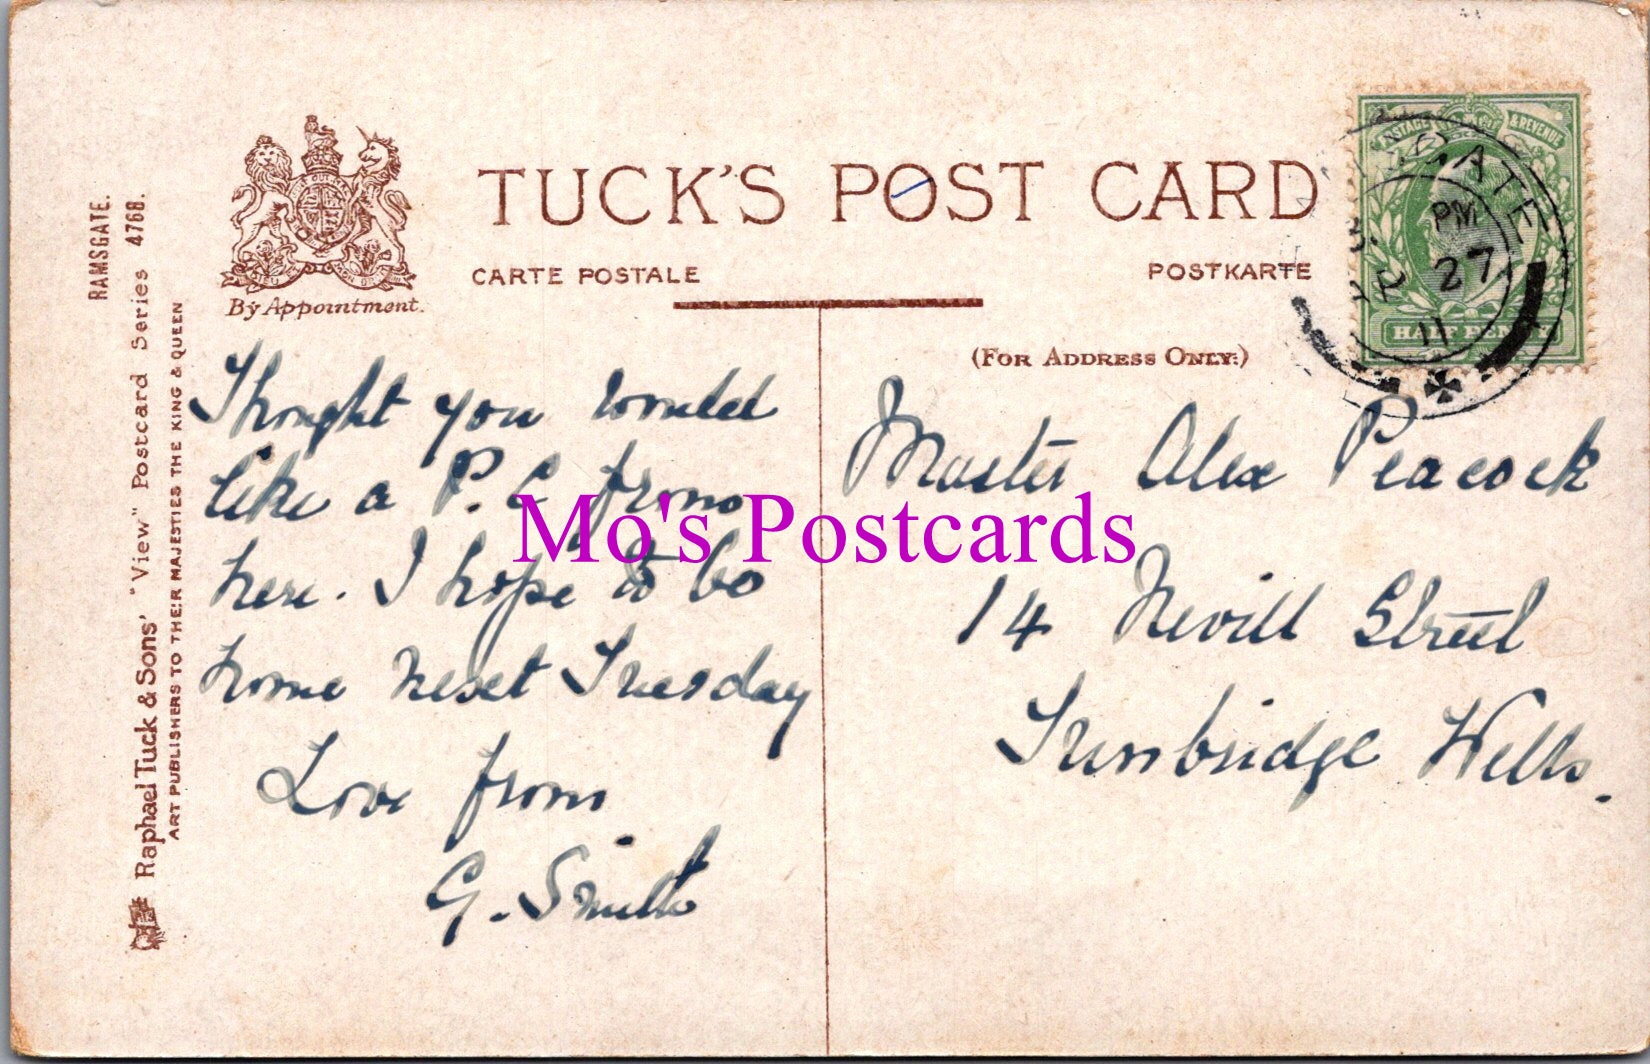 TUCK'S POST CARD
CARTE POSTALE
POSTKARTE
By Appointment.
(FOR ADDRESS ONLY.)
RAMSGATE.
Raphael Tuck & Sons' "View" Postcard Series 4768.
ART PUBLISHERS TO THEIR MAJESTIES THE KING & QUEEN
POSTAGE & REVENUE
HALF PENNY
GATE
PM
27
11
Thought you would
like a P.C from
here. I hope to be
home next Tuesday
Love from
G. Smith
Master Alex Peacock
14 Nevill Street
Tunbridge Wells.
Mo's Postcards